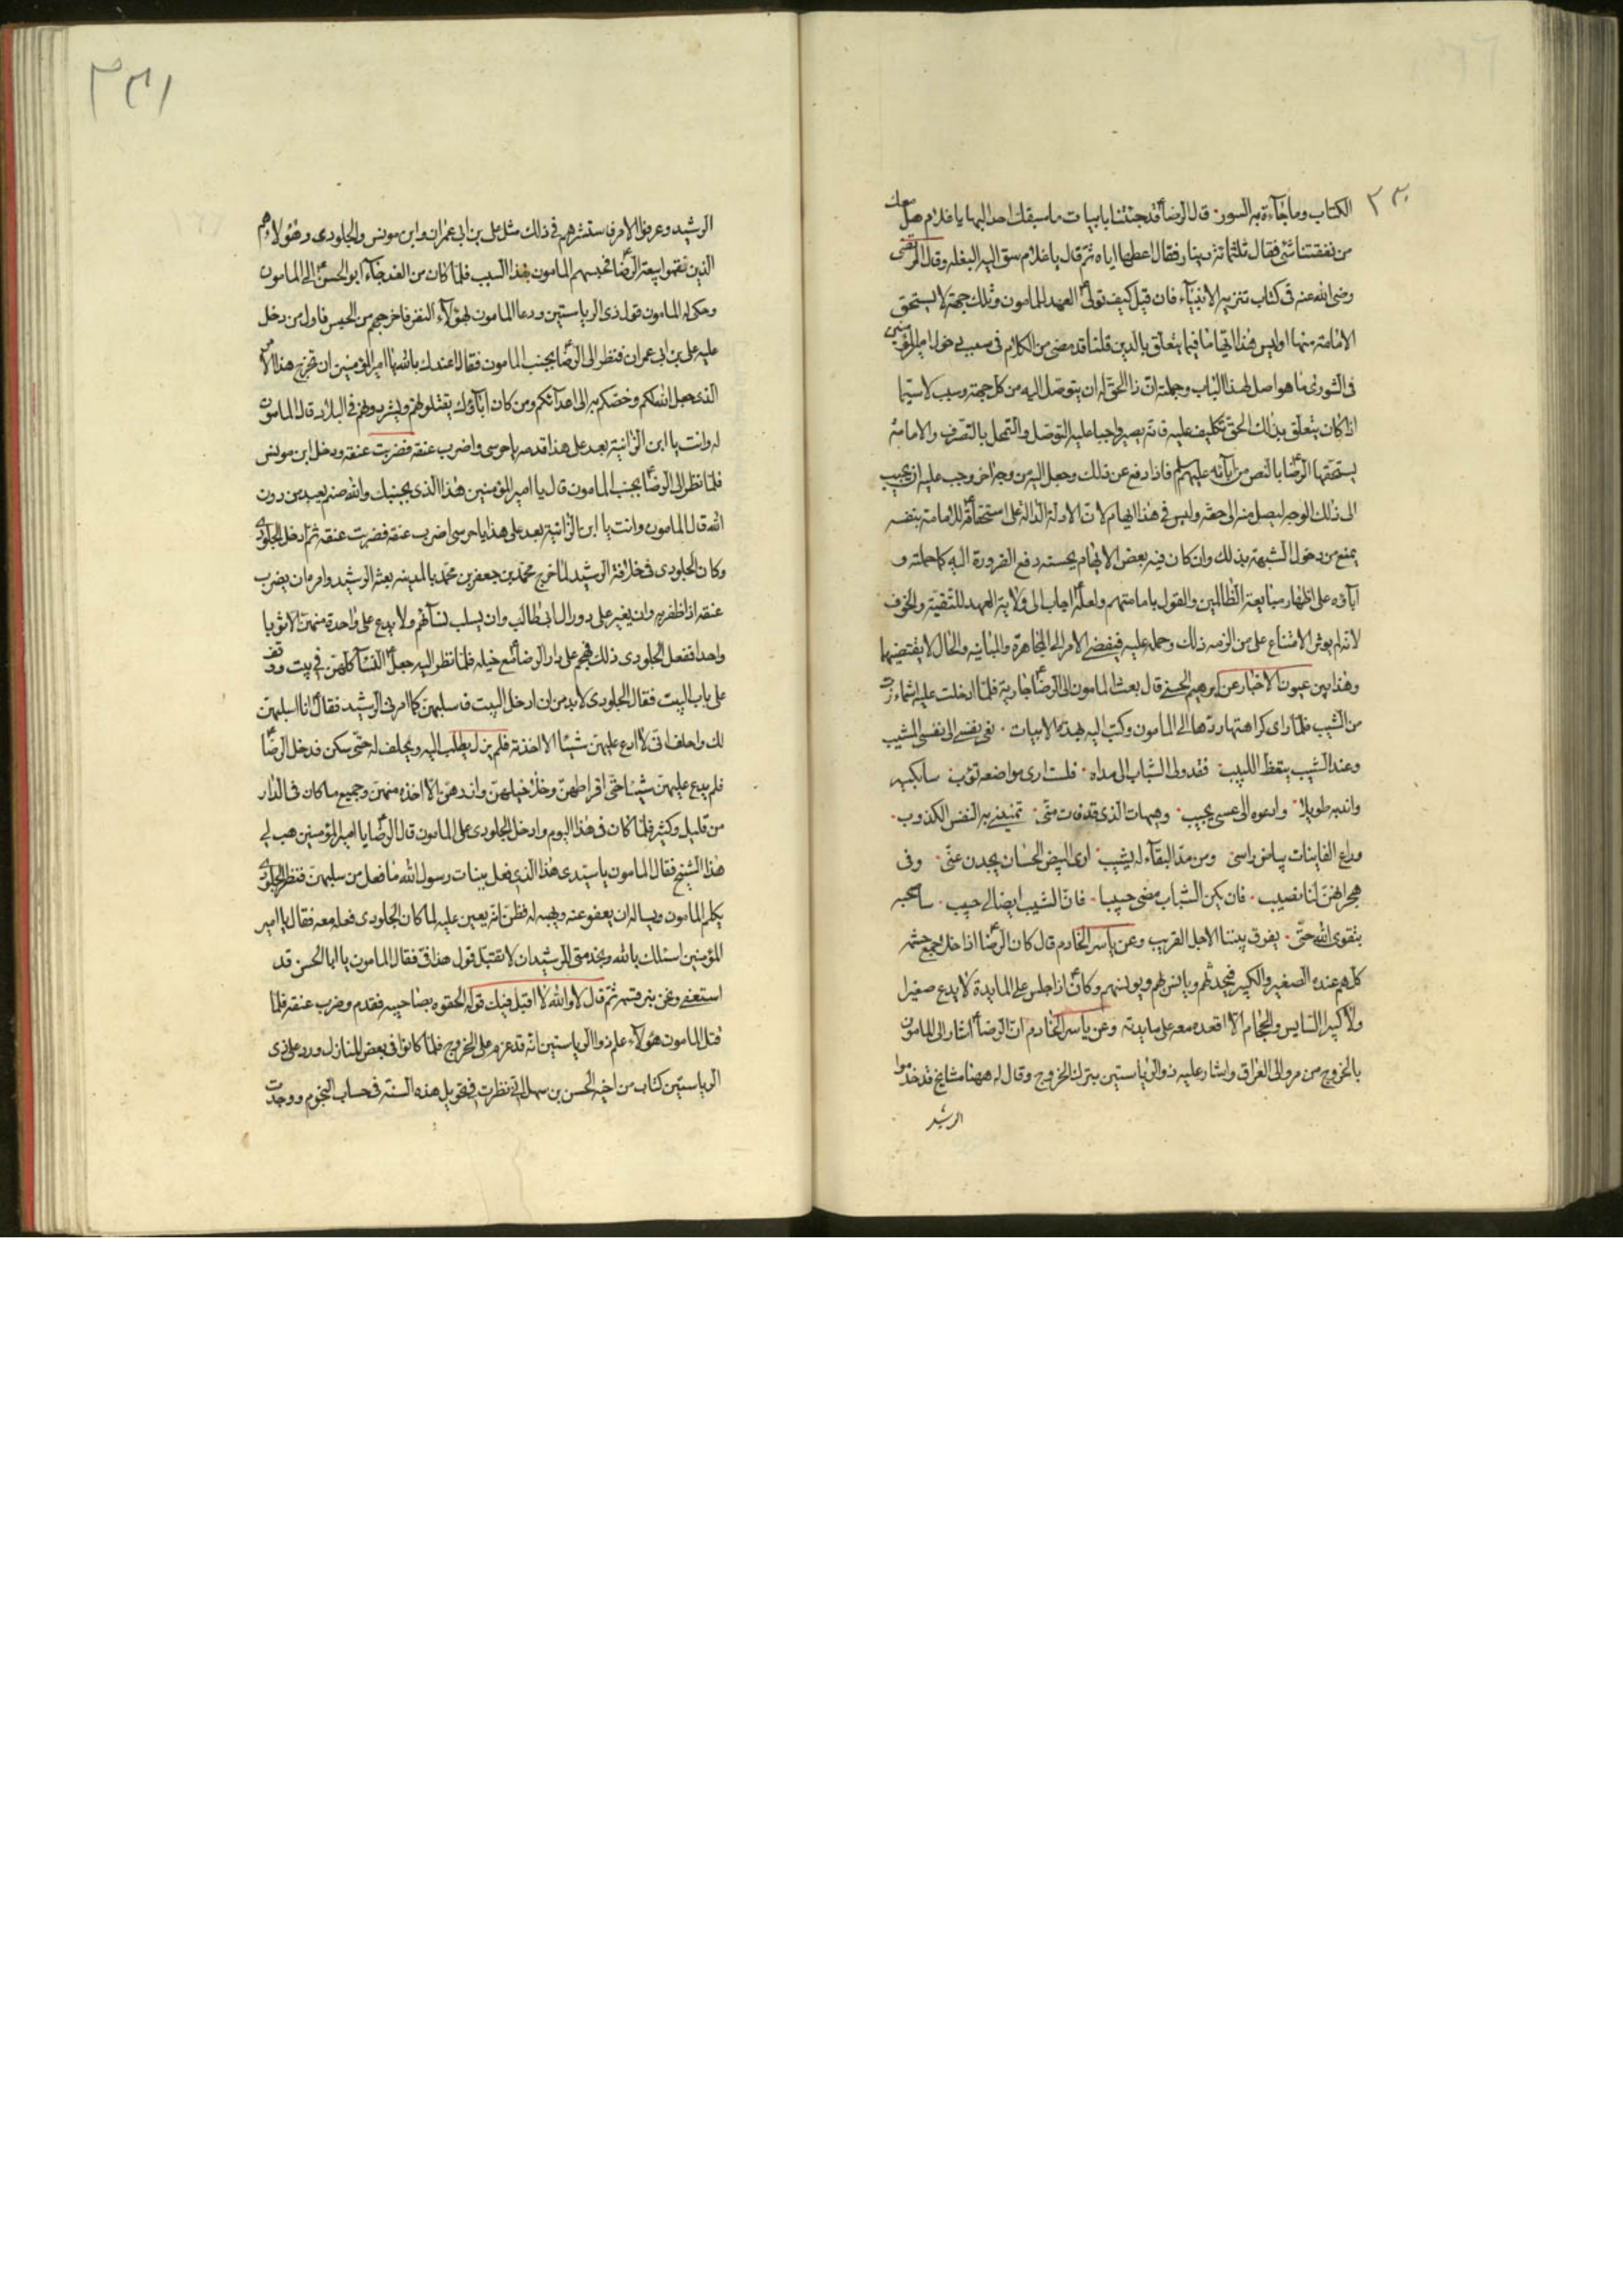 ٣٣٠
الكتاب وما جاءة به السور قال الرضاع قد جئتنا بابيات ما سبقك احد اليها يا غلام هل معك
من نفقتنا شئ فقال ثلثمائة دينار فقال اعطها اياه ثم قال يا غلام سق اليه البغله وقال المرتضى
رضى الله عنه فى كتاب تنزيه الانبياء فان قيل كيف تولىع العهد للمامون وتلك جهة لا يستحق
الامامة منها اوليس هذا ايهاما فيما يتعلق بالدين قلنا قد مضى من الكلام فى سبب دخول امير المؤمنين
فى الشورى ما هو اصل لهذا الباب وجملته ان ذا الحق له ان يتوصل اليه من كل جهة وسبب لا سيما
اذا كان يتعلق بذلك الحق تكليف عليه فانه يصير واجبا عليه التوصل والتمحل بالتصرف والامامة
يستحقها الرضاع بالنص من آبائه عليهم سلم فاذا دفع عن ذلك وجعل اليه من وجه اخر وجب عليه ان يجيب
الى ذلك الوجه ليصل منه الى حقه وليس فى هذا ايهام لان الادلة الدالة على استحقاقه للامامة بنفسه
يمنع من دخول الشبهة بذلك وان كان فيه بعض الايهام يحسنه دفع الضرورة اليه كما حملته و
آباؤه على اظهار متابعة الظالمين والقول بامامتهم ولعلهع اجاب الى ولاية العهد للتقية والخوف
لانه لم يؤثر الامتناع على من الزمه ذلك وحمله عليه فيفضى الامر الى المجاهرة والمباينة والحال لا يقتضيها
وهذا بين عيون الاخبار عن ابرهيم الحسنى قال بعث المامون الى الرضاع جارية فلما ادخلت عليه اشمأزت
من الشيب فلما راى كراهتها ردها الى المامون وكتب اليه بهذه الابيات نعى نفسى الى نفسى المشيب
وعند الشيب يتعظ اللبيب فقد ولى الشباب الى مداه فلست ارى مواضعه تؤب سابكيه
واندبه طويلا وادعوه الى عسى يجيب وهيهات الذى قد فات منى تمنينى به النفس الكذوب
وداع الغانيات بياض راسى ومن مد البقاء له يشيب ارى البيض الحسان يحدن عنى وفى
هجرانهن لنا نصيب فان يكن الشباب مضى حبيبا فان الشيب ايضا لى حبيب ساصحبه
بتقوى الله حتى يفرق بيننا الاجل القريب وعن ياسر الخادم قال كان الرضاع اذا خلا جمع حشمه
كلهم عنده الصغير والكبير فيحدثهم ويانس بهم ويونسهم وكانع اذا جلس على المايدة لا يدع صغيرا
ولا كبيرا السايس والحجام الا اقعده معه على مايدته وعن ياسر الخادم ان الرضاع اشار الى المامون
بالخروج من مرو الى العراق واشار عليه ذو الرياستين بترك الخروج وقال له ههنا مشايخ قد خدموا
الرشيد
٣٣١
الرشيد وعرفوا الامر فاستشرهم فى ذلك مثل على بن ابى عمران وابن مونس والجلودى وهؤلاء هم
الذين نقموا بيعة الرضاع فحبسهم المامون بهذا السبب فلما كان من الغد جاء ابو الحسنع الى المامون
وحكى له المامون قول ذى الرياستين ودعا المامون بهؤلاء النفر فاخرجهم من الحبس فاول من دخل
عليه على بن ابى عمران فنظر الى الرضاع بجنب المامون فقال اعيذك بالله يا امير المؤمنين ان تخرج هذا الامر
الذى جعل الله لكم وخصكم به الى اعدائكم ومن كان اباؤك يقتلونهم ويشردونهم فى البلاد قال المامون
له وانت يا ابن الزانية بعد على هذا قدمه يا حرسى واضرب عنقه فضربت عنقه ودخل ابن مونس
فلما نظر الى الرضاع بجنب المامون قال يا امير المؤمنين هذا الذى بجنبك والله صنم يعبد من دون
الله قال المامون وانت يا ابن الزانية بعد على هذا يا حرسى اضرب عنقه فضربت عنقه ثم ادخل الجلودى
وكان الجلودى فى خلافة الرشيد لما خرج محمد بن جعفر بن محمد بالمدينه بعثه الرشيد وامره ان يضرب
عنقه اذا ظفر به وان يغير على دور ال ابى طالب وان يسلب نساءهم ولا يدع على واحدة منهن الا ثوبا
واحدا ففعل الجلودى ذلك فهجم على دار الرضاع مع خيله فلما نظر اليه جعلع النساء كلهن فى بيت ووقف
على باب البيت فقال الجلودى لا بد من ان ادخل البيت فاسلبهن كما امرنى الرشيد فقالع انا اسلبهن
لك واحلف انى لا ادع عليهن شيئا الا اخذته فلم يزل يطلب اليه ويحلف له حتى سكن فدخل الرضاع
فلم يدع عليهن شيئا حتى اقراطهن وخلاخيلهن وازرهن الا اخذه منهن وجميع ما كان فى الدار
من قليل وكثير فلما كان فى هذا اليوم وادخل الجلودى على المامون قال الرضاع يا امير المؤمنين هب لى
هذا الشيخ فقال المامون يا سيدى هذا الذى فعل ببنات رسول الله ما فعل من سلبهن فنظر الجلودى
يكلم المامون ويساله ان يعفو عنه ويهبه له فظن انه يعين عليه لما كان الجلودى فعله معه فقال يا امير
المؤمنين اسئلك بالله وبخدمتى للرشيد ان لا تقبل قول هذا فى فقال المامون يا ابا الحسن قد
استعفى ونحن نبر قسمه ثم قال لا والله لا اقبل فيك قوله الحقوه بصاحبيه فقدم وضرب عنقه فلما
قتل المامون هؤلاء علم ذو الرياستين انه قد عزم على الخروج فلما كانوا فى بعض المنازل ورد على ذى
الرياستين كتاب من اخيه الحسن بن سهل انى نظرت فى تحويل هذه السنة فى حساب النجوم ووجدت